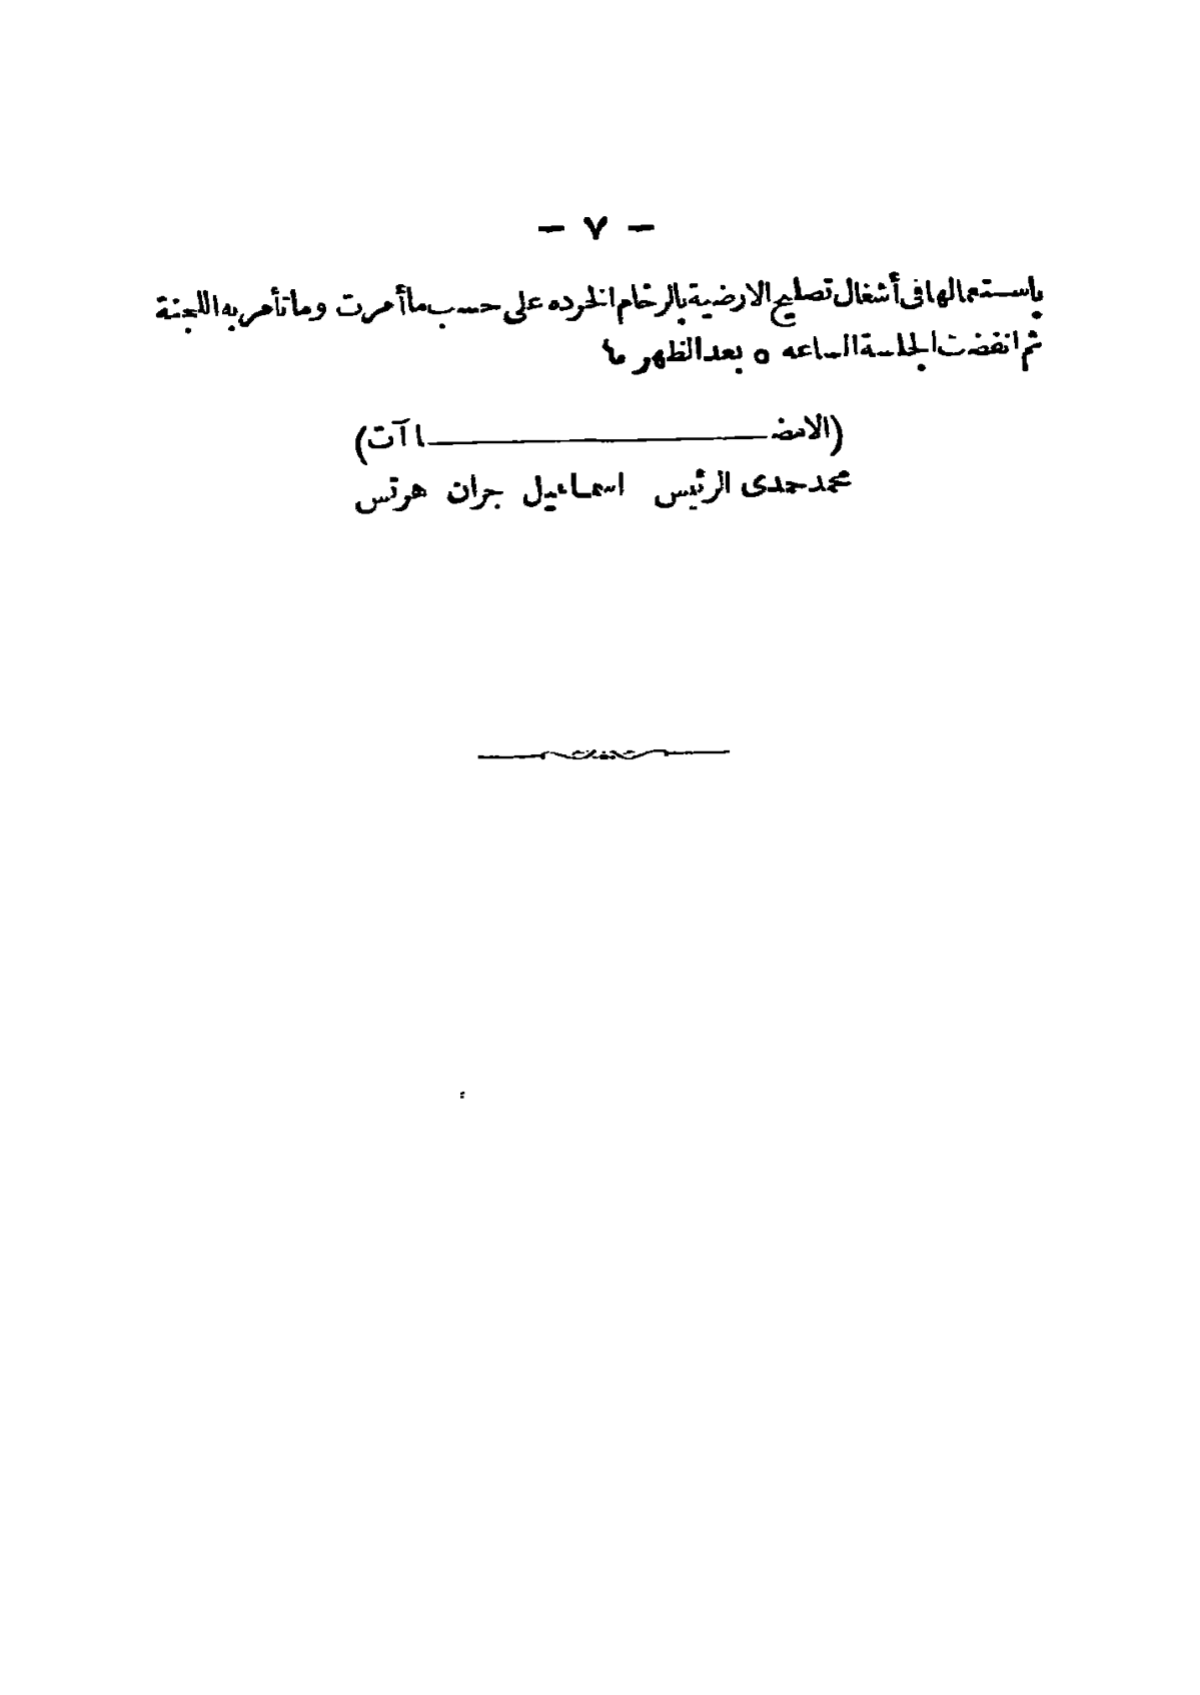 — ٧ —
باستعمالها فى أشغال تصليح الارضية بالرخام الخرده على حسب ما أمرت وما تأمر به اللجنة
ثم انفضت الجلسة الساعه ٥ بعد الظهر
(الامضاآت)
محمد حمدى الرئيس اسماعيل جران هرتس